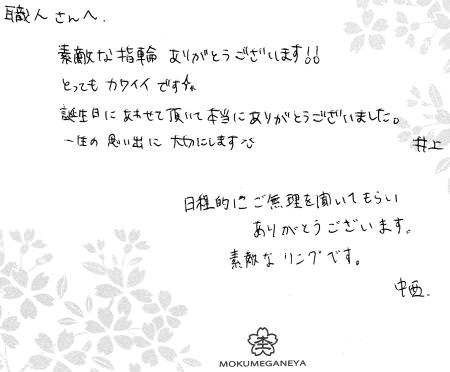 職人さんへ.
素敵な指輪 ありがとうございます!!
とっても カワイイです☆
誕生日にあわせて頂いて本当にありがとうございました。
一生の思い出に 大切にします
井上
日程的にご無理を聞いてもらい
ありがとうございます。
素敵な リングです。
中西.
MOKUMEGANEYA